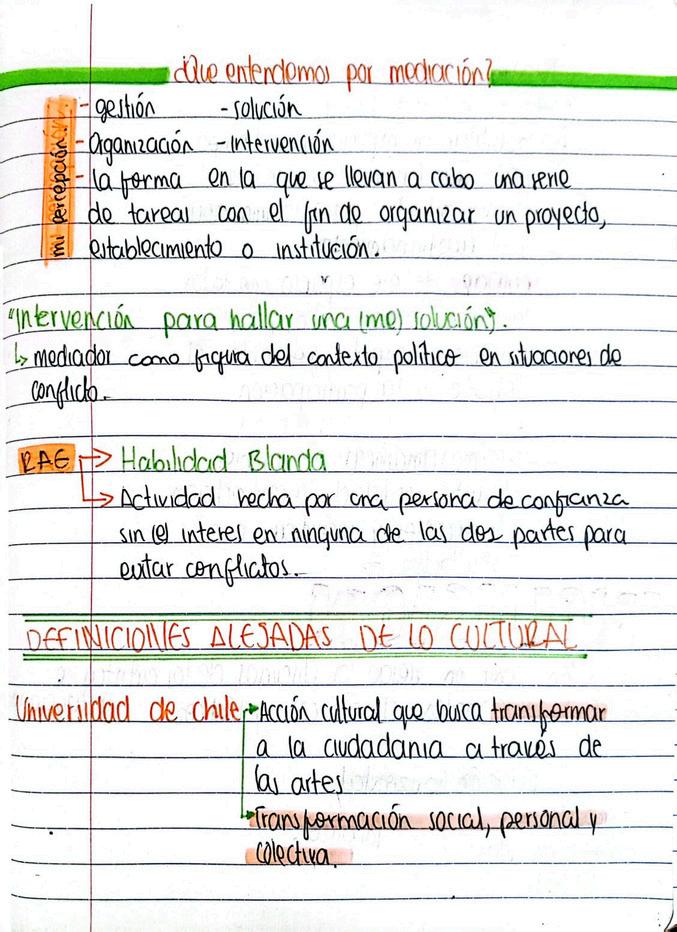 ¿Que entendemos por mediación?
mi percepción.
- gestión - solución
- Organización - Intervención
- la forma en la que se llevan a cabo una serie
de tareas con el fin de organizar un proyecto,
establecimiento o institución.
"Intervención para hallar una (me) solución".
↳ mediador como figura del contexto político en situaciones de
conflicto.
RAE → Habilidad Blanda
→ Actividad hecha por una persona de confianza
sin (e) interes en ninguna de las dos partes para
evitar conflictos.
DEFINICIONES ALEJADAS DE LO CULTURAL
Universidad de chile → Acción cultural que busca transformar
a la ciudadania a través de
las artes
→ Transformación social, personal y
colectiva.